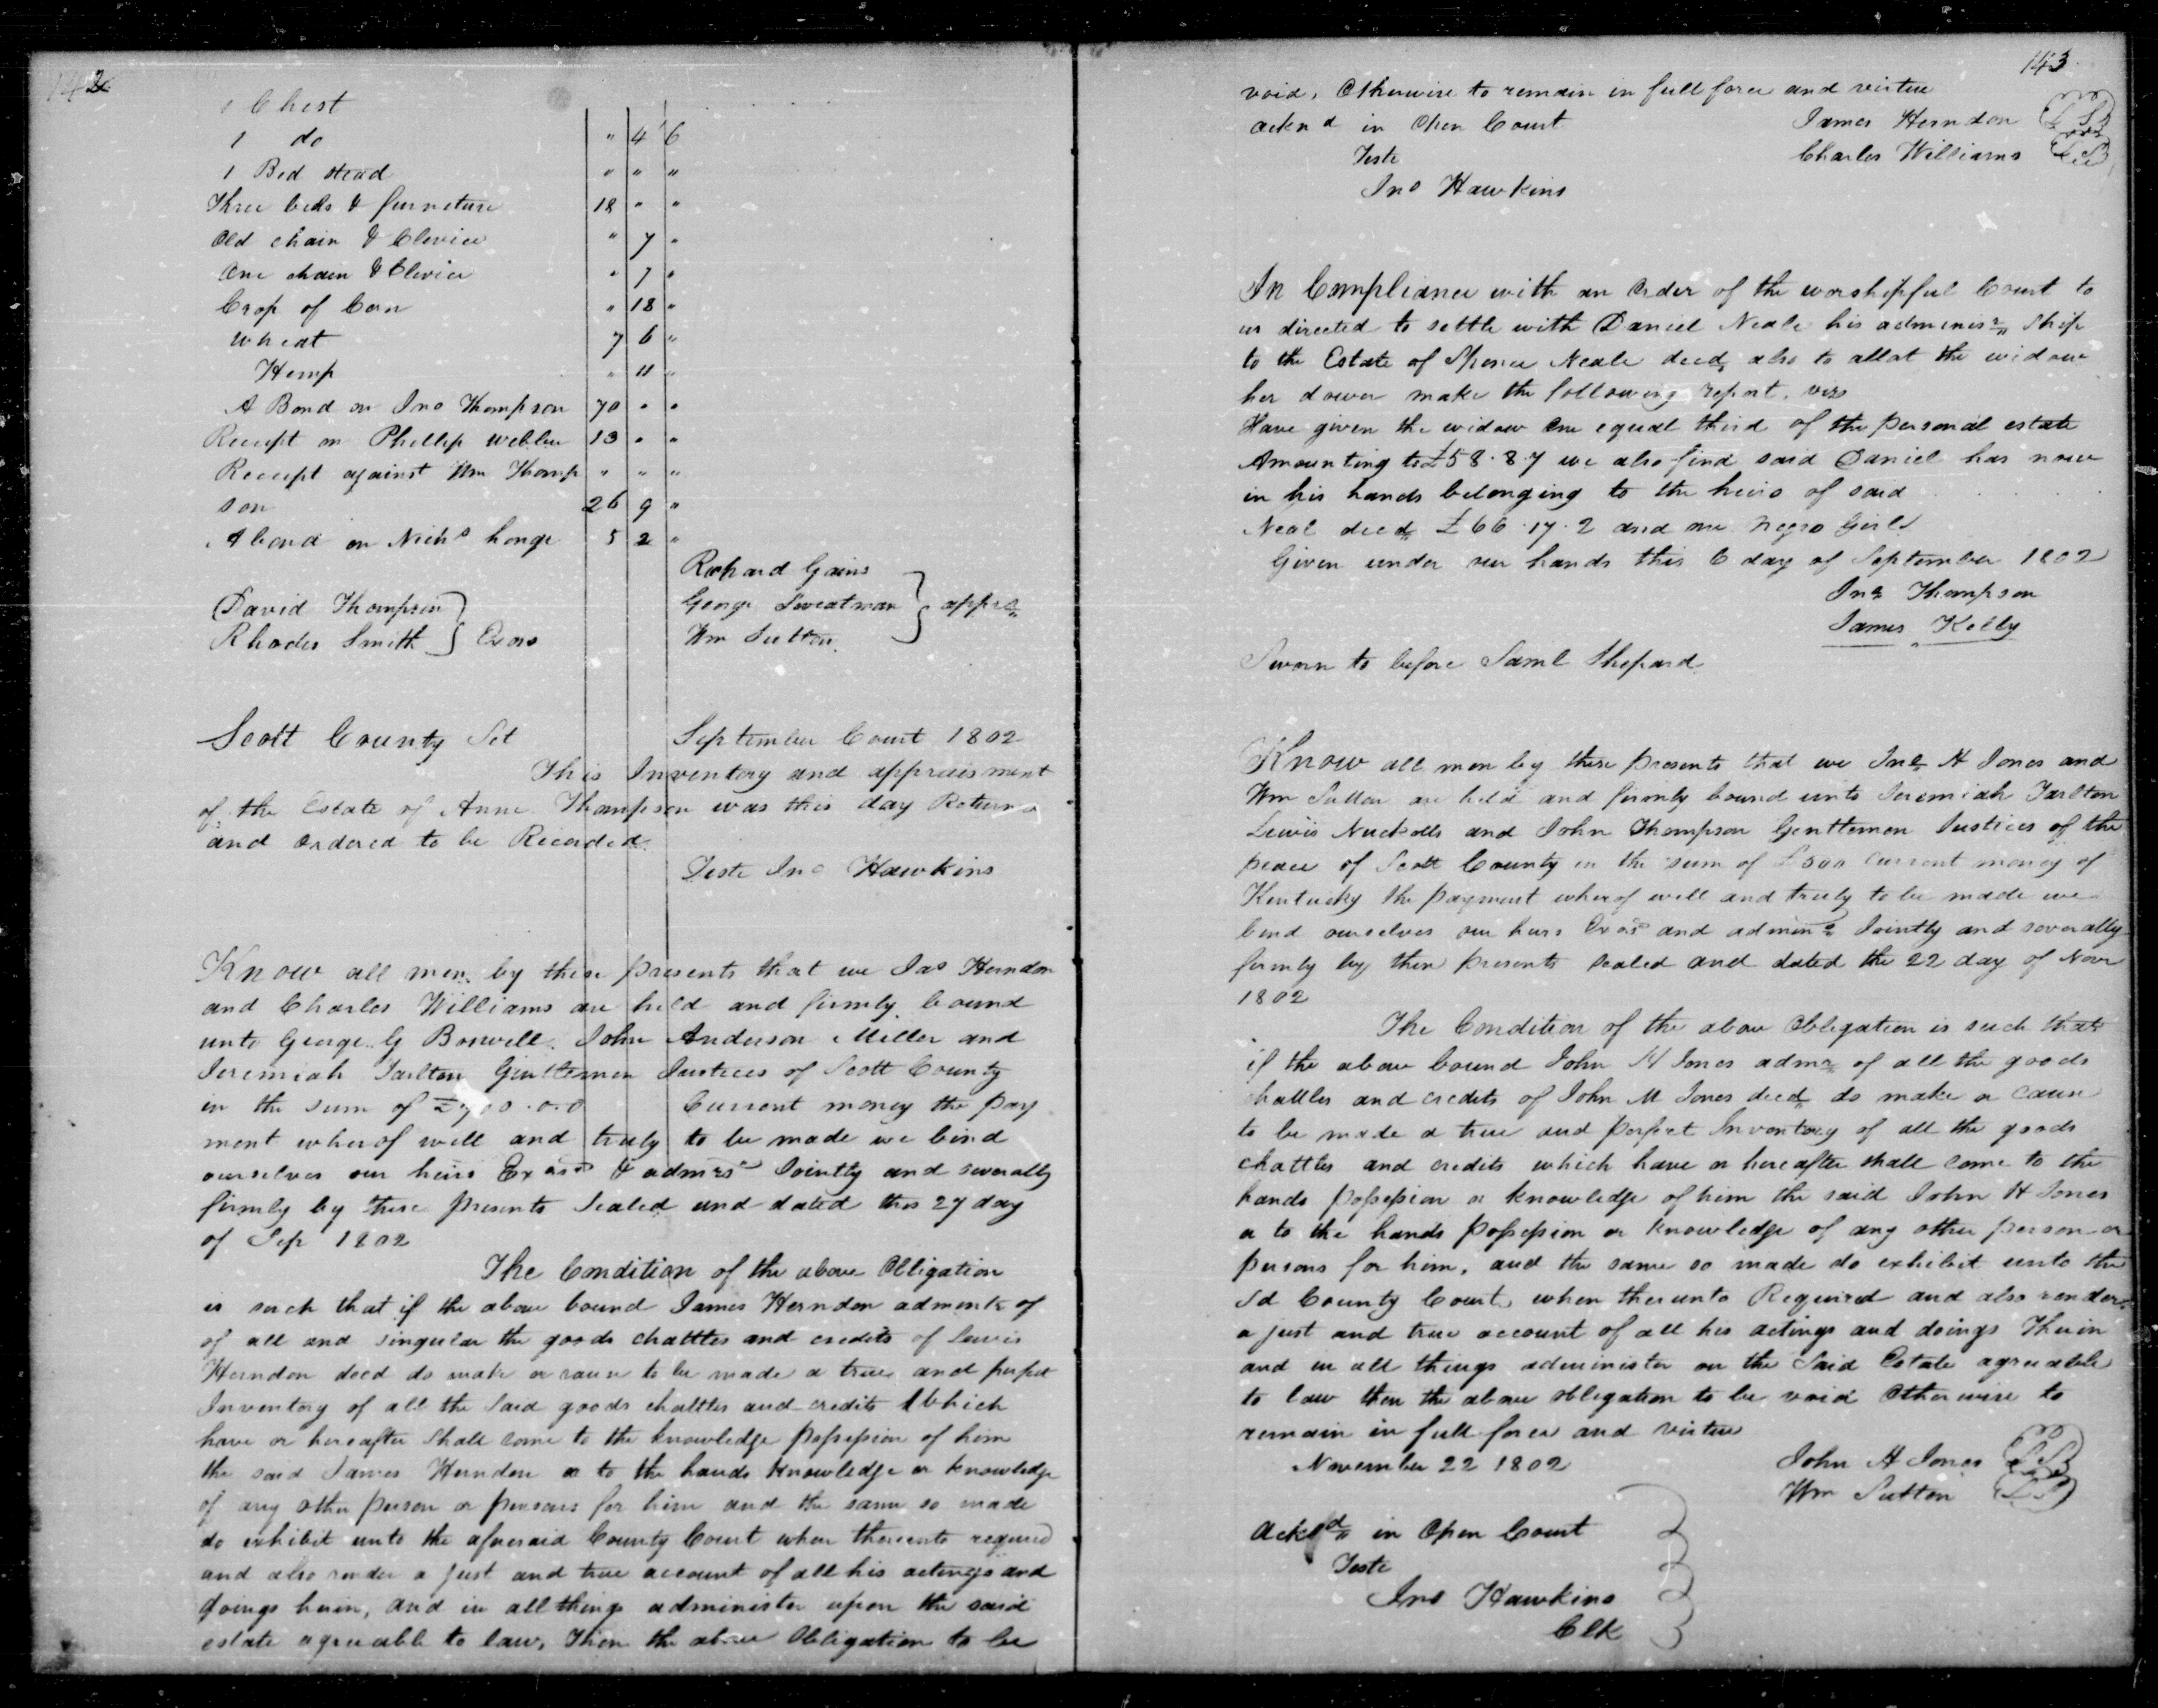 142
1 Chest
1 do " 4 6
1 Bed stead " " "
Three beds & furneture 18 " "
Old chain & Clevice " 7 "
One chain & Clevice " 7 "
Crop of Corn " 18 "
Wheat 7 6 "
Hemp " 11 "
A Bond on Jno Thompson 70 " "
Receipt on Phillip 13 " "
Receipt against Wm Thomp " " "
son 26 9 "
A bond on Nichs 5 2 "
Richard Gains
David Thompson George Sweatman apprs
Rhodes Smith } Exors Wm Sutton
Scott County Sct September Court 1802
This Inventory and appraisment
of the Estate of Anne Thompson was this day Returnd
and ordered to be Recorded
Teste Jno Hawkins
Know all men by these presents that we Jas Herndon
and Charles Williams are held and firmly bound
unto George G Boswell John Anderson Miller and
Jeremiah Tarlton Gentlemen Justices of Scott County
in the sum of Current money the pay
ment wherof well and truly to be made we bind
ourselves our heirs Exors & admrs Jointly and severally
firmly by these presents Sealed and dated this 27 day
of Sep 1802
The Condition of the above Obligation
is such that if the above bound James Herndon of
of all and singular the goods chattles and credits of Lewis
Herndon decd do make or cause to be made a true and perfect
Inventory of all the said goods chattles and credits Which
have or hereafter shall come to the knowledge possession of him
the said James Herndon or to the hands knowledge or knowledge
of any other person or persons for him and the same so made
do exhibit unto the aforesaid County Court when thereunto required
and also render a just and true account of all his actings and
doings herin, and in all things administer upon the said
estate agreeable to law, Then the above Obligation to be
143
void, Otherwise to remain in full force and virtue
acknd in Open Court James Herndon LS
Teste Charles Williams LS
Jno Hawkins
In Compliance with an Order of the worshipful Court to
us directed to settle with Daniel Neale his adminisr Ship
to the Estate of Spence Neale decd also to allot the widow
her dower make the following report, viz
Have given the widow one equal third of the personal estate
Amounting to £58.8.7 we also find said Daniel has now
in his hands belonging to the heirs of said
Neal decd £66.17.2 and one negro Girl
Given under our hands this 6 day of September 1802
Jno Thompson
James Kelly
Sworn to before Saml Shepard
Know all men by these presents that we Jno H Jones and
Wm Sutton are held and firmly bound unto Jeremiah Tarlton
Lewis Nuckolls and John Thompson Gentlemen Justices of the
peace of Scott County in the sum of £500 Current money of
Kentucky the payment wherof well and truly to be made we
bind ourselves our heirs Exors and admins Jointly and severally
firmly by these presents sealed and dated the 22 day of Novr
1802
The Condition of the above Obligation is such that
if the above bound John H Jones admr of all the goods
chattles and credits of John M Jones decd do make or cause
to be made a true and perfect Inventory of all the goods
chattles and credits which have or hereafter shall come to the
hands possession or knowledge of him the said John H Jones
or to the hands possession or knowledge of any other person or
persons for him, and the same so made do exhibit unto the
sd County Court, when therunto Required and also render
a just and true account of all his actings and doings Therin
and in all things administer on the Said Estate agreeable
to law then the above obligation to be void Otherwise to
remain in full force and virtue
November 22 1802 John H Jones LS
Wm Sutton LS
Acknd in Open Court
Teste
Jno Hawkins
Clk